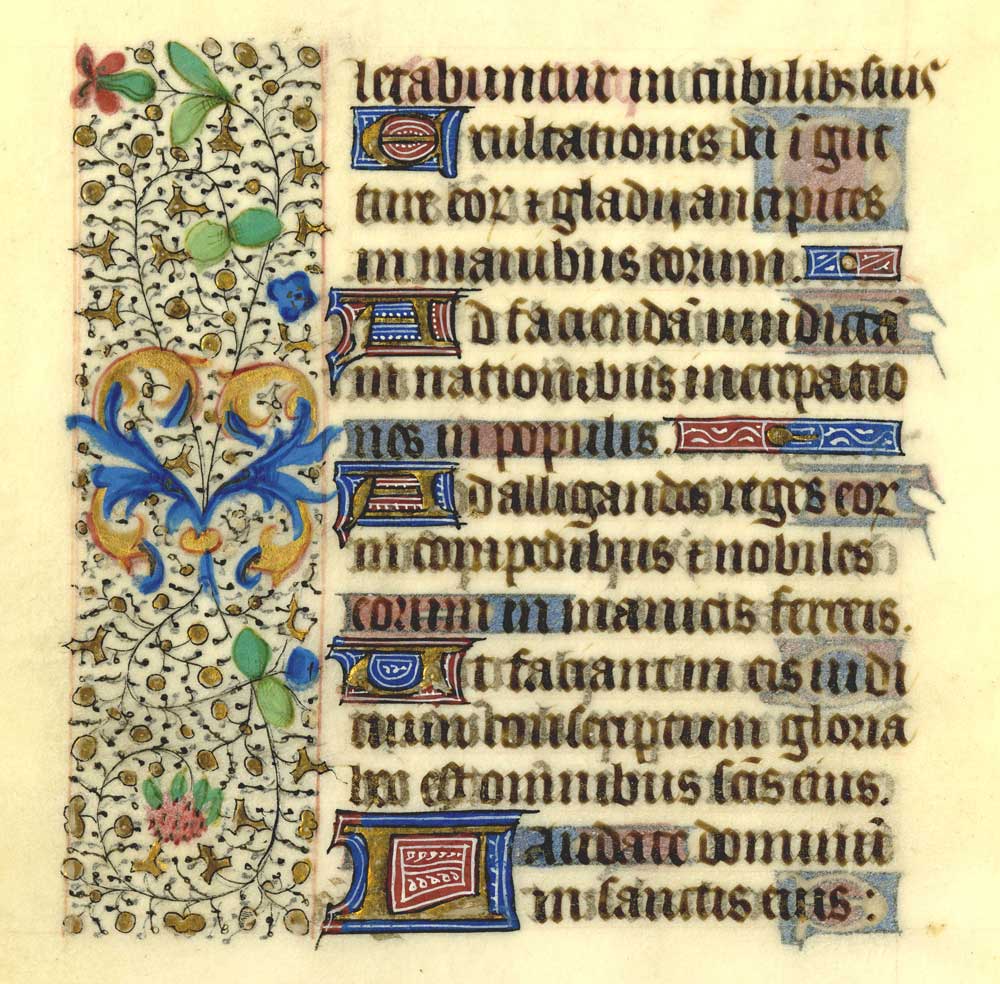 letabuntur in cubilibs suis
Exultationes dei ī gut
ture eoꝝ ⁊ gladij ancipites
in manibus eorum.
Ad faciendā vindictā
in nationibus increpatio
nes in populis.
Ad alligandos reges eoꝝ
in compedibus ⁊ nobiles
eorum in manicis ferreis.
Ut faciant in eis iudi
cium conscriptum gloria
hec est omnibus scīs eius.
Laudate dominū
in sanctis eius :